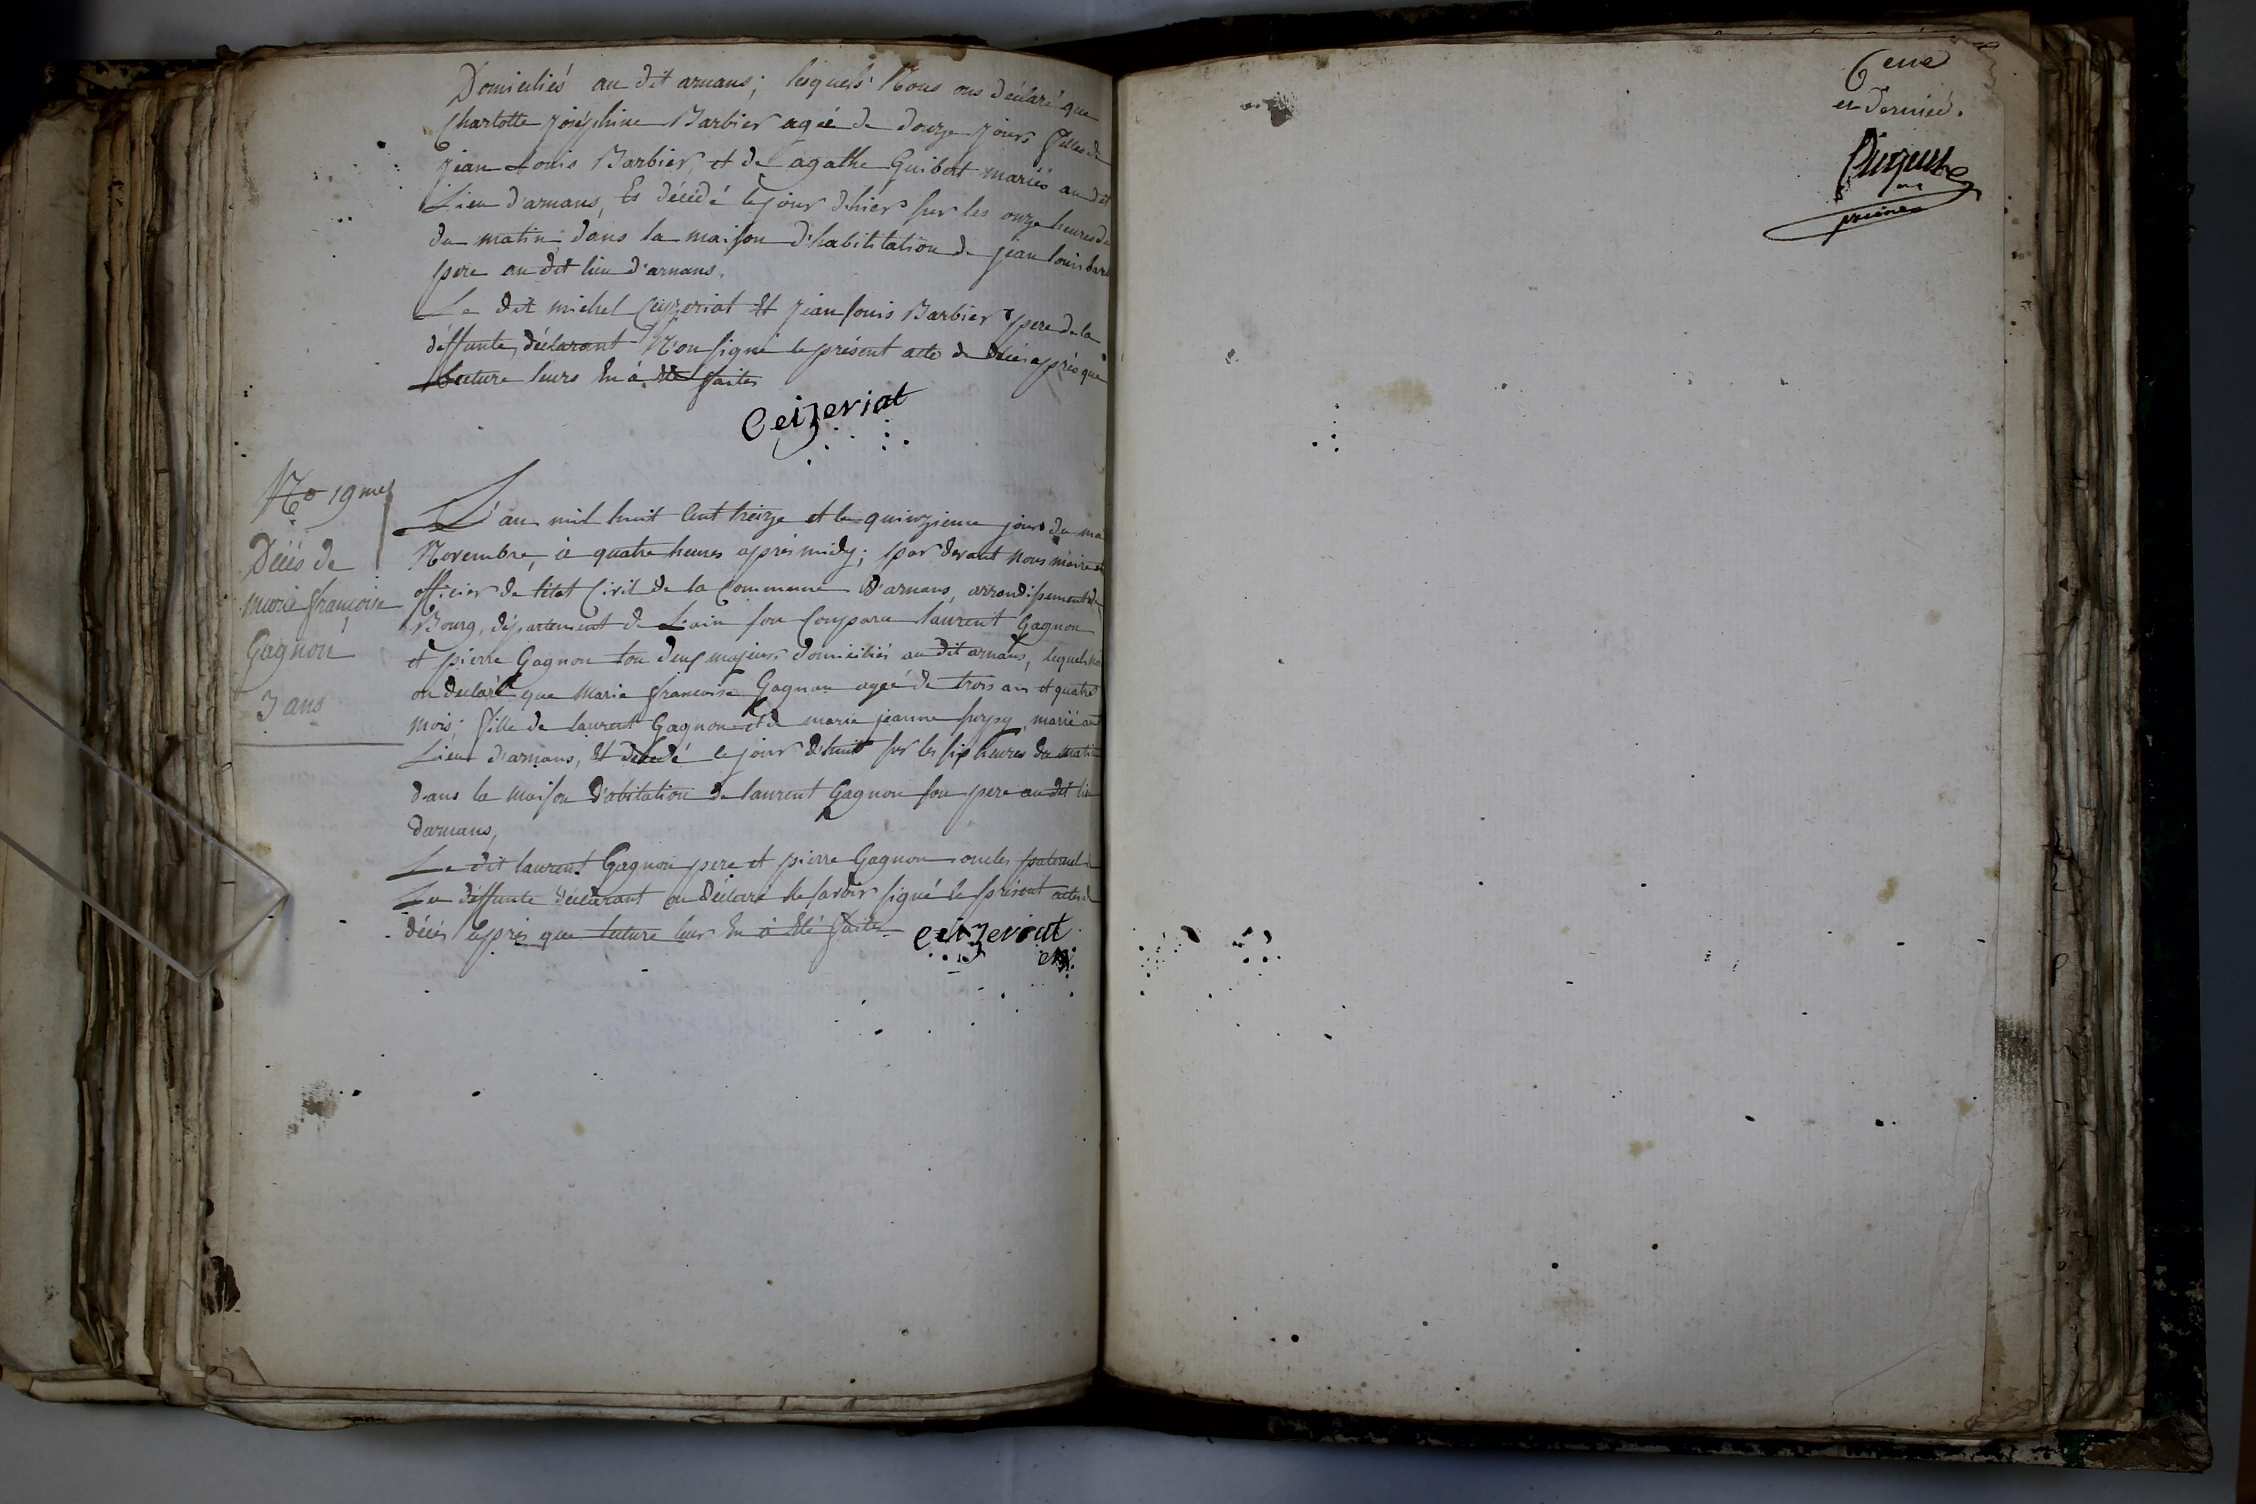 Domiciliés au dit arnans; lesquels Nous ons déclaré que
Charlotte joséphine Barbier ageé de douze jours fille de
jean Louis Barbier, et de agathe Guibert mariés au dit
Lieu d'arnans, Es décédé le jour d'hiers sur les onze heures du
du matin dans la maison d'habitation de jean louis
pere au dit lieu d'arnans.
Le dit michel Ceyzeriat Et jean louis Barbier pere de la
déffunte, déclarant N'on signé le présent acte de après que
lecture leurs En à été faites
Ceizeriat
No 19me
Décés de
marie françoise
Gagnon
3 ans
L'an mil huit Cent treize et le quinzieme jours du
Novembre, à quatre heures après midy; par devant nous maire
officier de l'état Civil de la Commune D'arnans, arrondissement de
Bourg, département de L'ain son Comparu laurent Gagnon
et pierre Gagnon tou deux majeurs domiciliés au dit arnans, lequels
on declaré que Marie francoise Gagnon ageé de trois ans et quatre
mois; fille de laurent Gagnon et de marie jeanne marié au
Lieu d'arnans, Et décedé le jour sur les six heures du matin
dans la maison d'abitation de laurent Gagnon son pere au dit
d'arnans,
Le dit laurent Gagnon pere et pierre Gagnon oncles paternel
La déffunte déclarant on déclaré Ne savoir signé le présent acte de
décés après que lecture leur En à été faites Ceizeriat
6eme
et dernier.